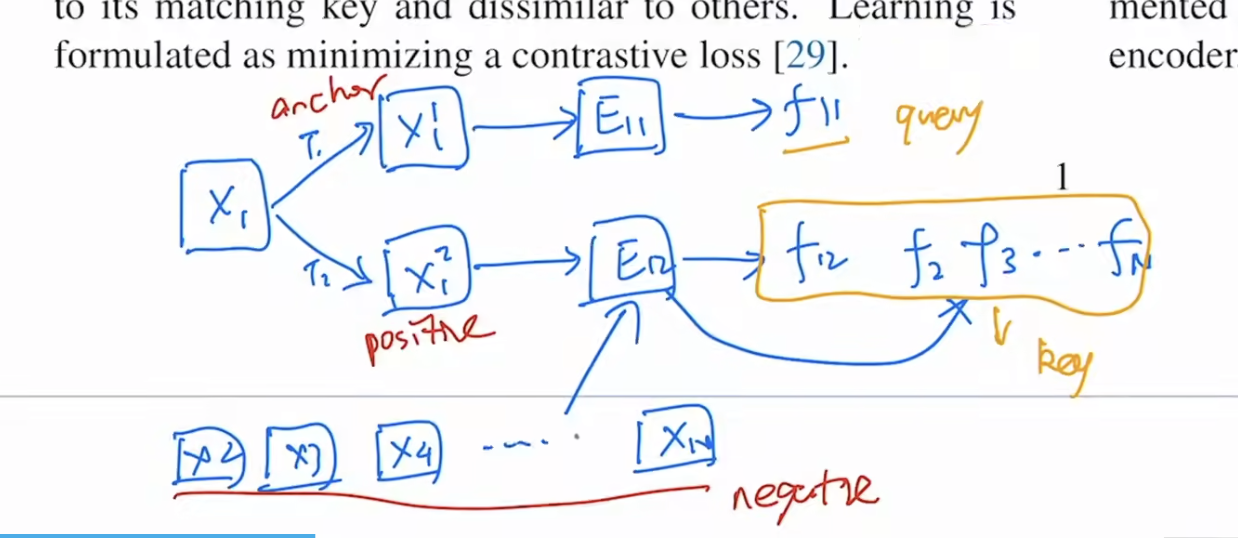 to its matching key and dissimilar to others. Learning is
mented
formulated as minimizing a contrastive loss [29].
encoder
anchor
T₁
X₁¹
E₁₁
f₁₁
query
1
X₁
T₂
X₁²
E₁₂
f₁₂ f₂ f₃ ... fₙ
positive
key
X₂ X₃ X₄ ... Xₙ
negative